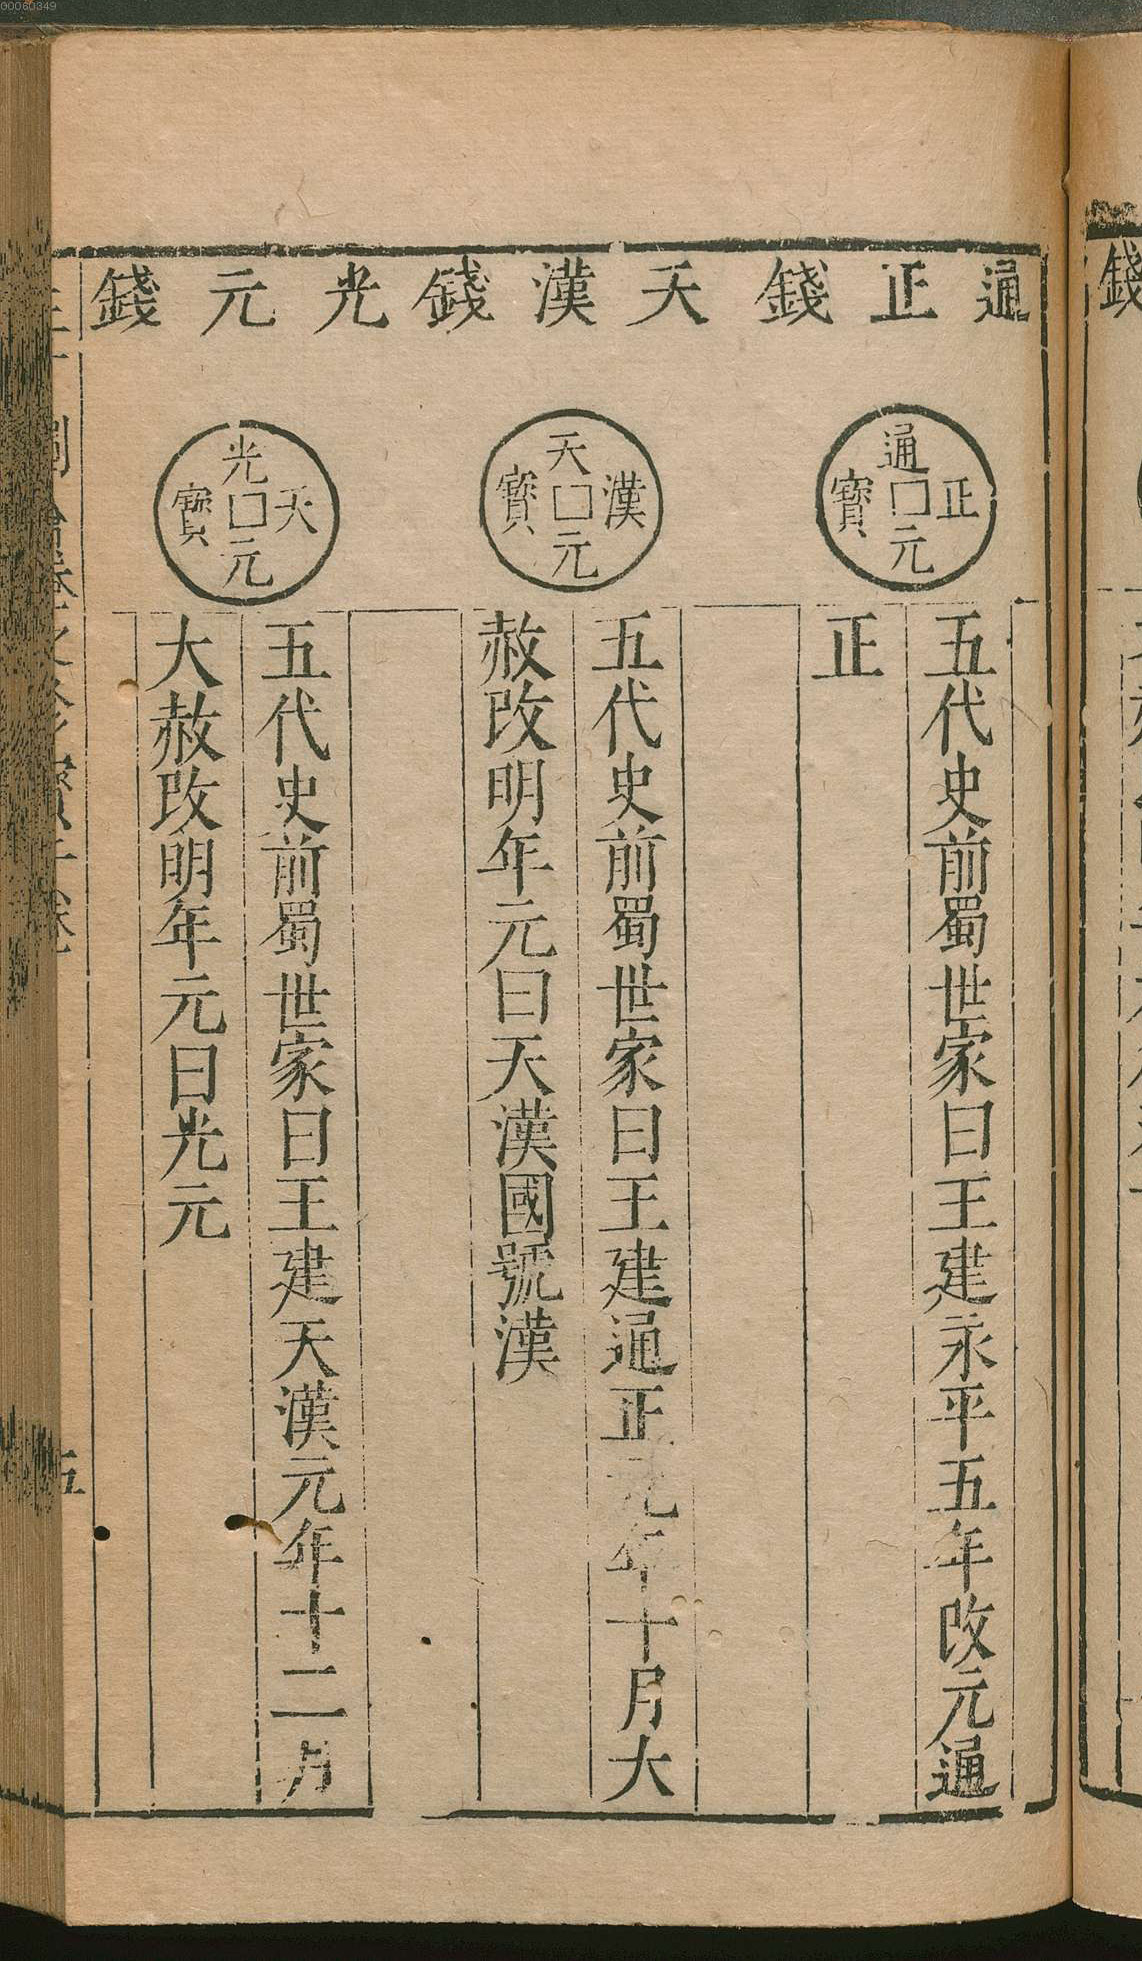 00060349
通正錢
通正元寶
五代史前蜀世家曰王建永平五年改元通
正
天漢錢
天漢元寶
五代史前蜀世家曰王建通正元年十月大
赦改明年元曰天漢國號漢
光元錢
光天元寶
五代史前蜀世家曰王建天漢元年十二月
大赦改明年元曰光元
五
錢